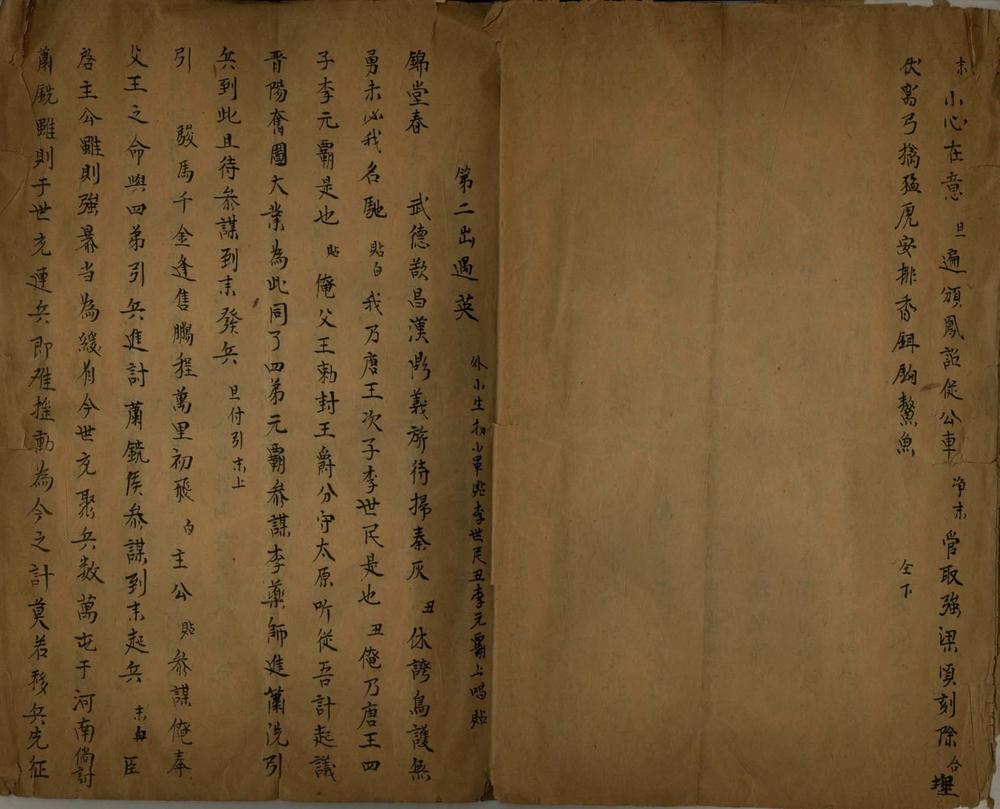 末 小心在意 旦 遍頒鳳詔從公車 净末 管取強梁頃刻除 合 埋
伏窩弓擒猛虎安排香餌釣鰲魚 仝下
第二出遇英 外小生扮小軍貼李世民丑李元霸上唱貼
錦堂春 武德歆昌漢鼎義旂待掃秦灰 丑 休誇鳥護無
勇未必我名馳 貼白 我乃唐王次子李世民是也 丑 俺乃唐王四
子李元霸是也 貼 俺父王勅封王爵分守太原听從吾計起議
晋陽奮圖大業為此同了四弟元霸參謀李藥師進蕭洗引
兵到此且待參謀到來發兵 旦付引末上
引 駿馬千金逢售鵬程萬里初飛 白 主公 貼 參謀俺奉
父王之命與四弟引兵進討蕭銑候參謀到來起兵 末 臣
啓主公雖則強暴当為緩有今世充聚兵数萬屯于河南倘討
蕭銑雖則于世充連兵即难摧動為今之計莫若移兵先征